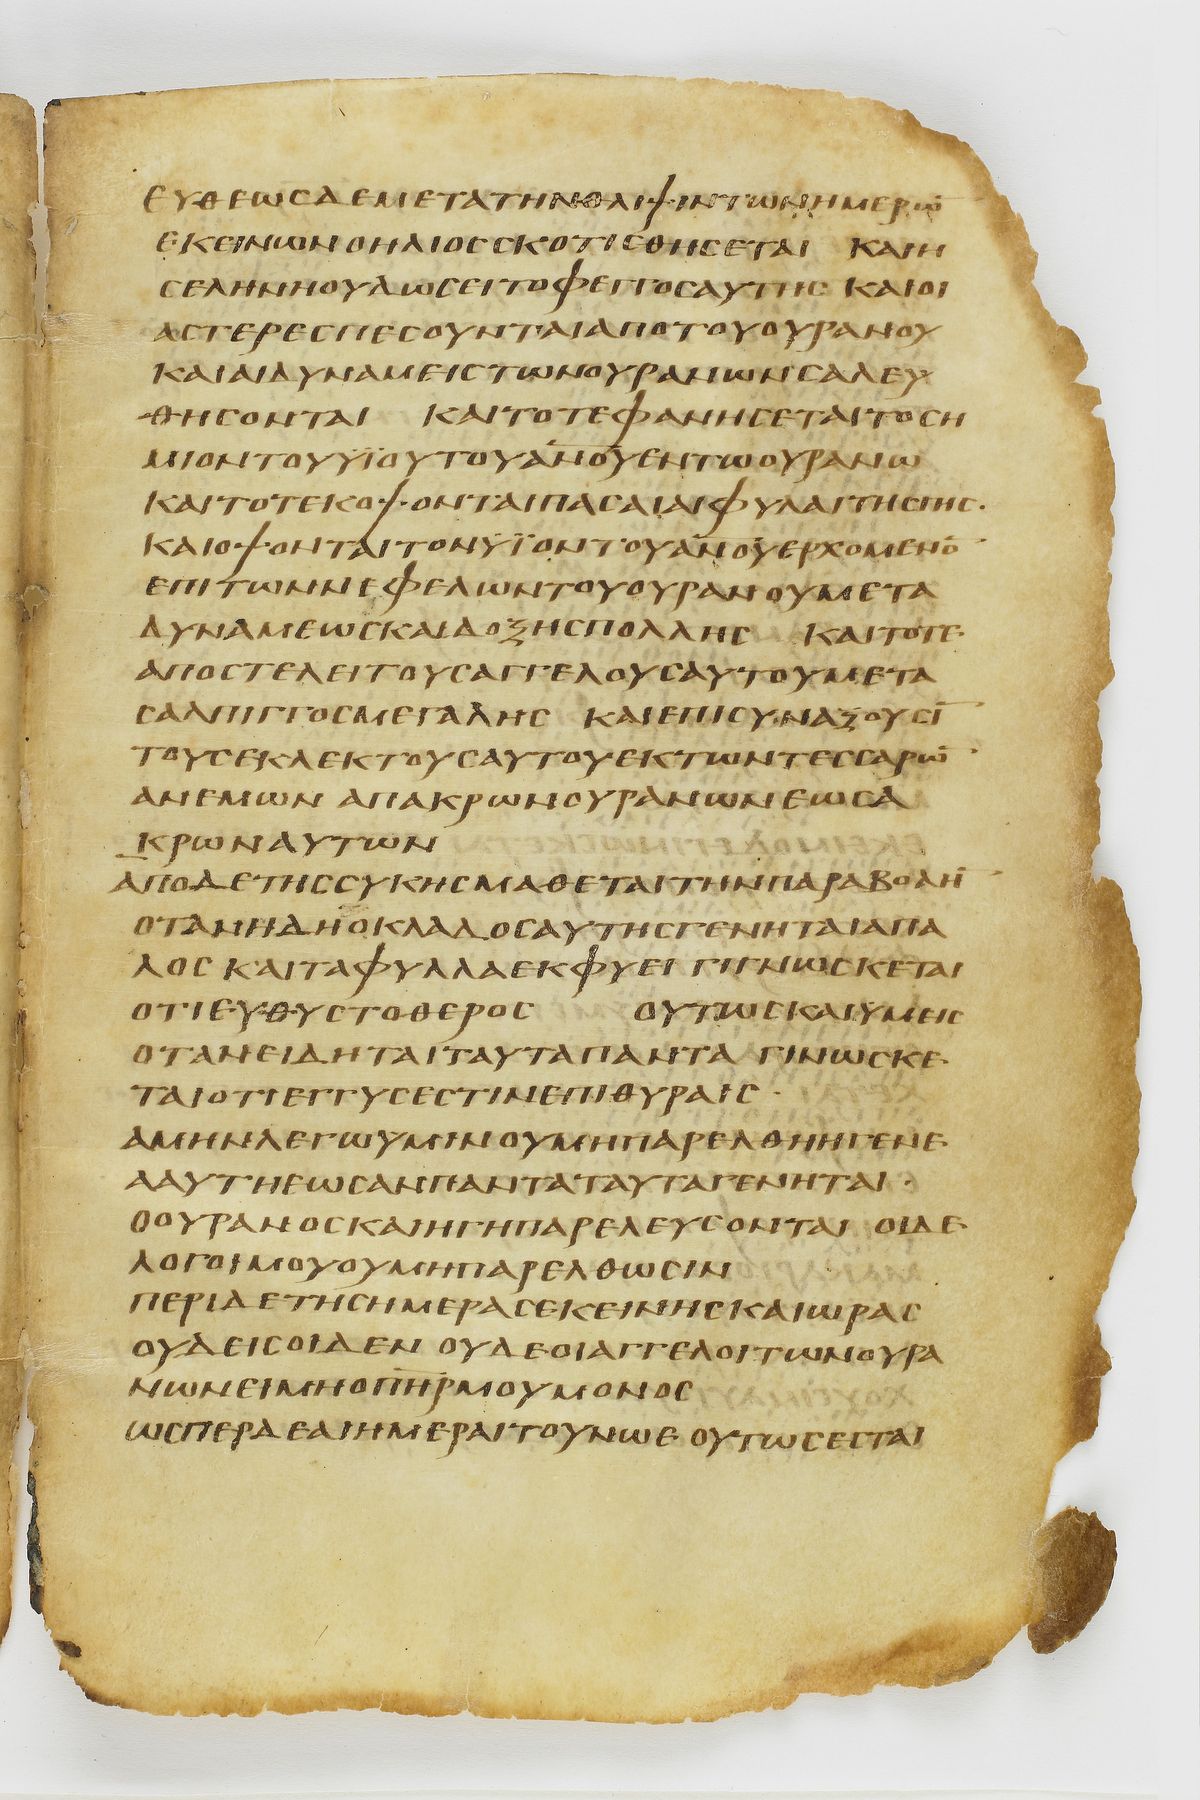 ΕΥΘΕΩСΔΕΜΕΤΑΤΗΝΘΛΙΨΙΝΤΩΝΗΜΕΡΩ̅
ΕΚΕΙΝΩΝΟΗΛΙΟССΚΟΤΙСΘΗСΕΤΑΙ ΚΑΙΗ
СΕΛΗΝΗΟΥΔΩСΕΙΤΟΦΕΓΓΟСΑΥΤΗС ΚΑΙΟΙ
ΑСΤΕΡΕСΠΕСΟΥΝΤΑΙΑΠΟΤΟΥΟΥΡΑΝΟΥ
ΚΑΙΑΙΔΥΝΑΜΕΙСΤΩΝΟΥΡΑΝΩΝСΑΛΕΥ
ΘΗСΟΝΤΑΙ ΚΑΙΤΟΤΕΦΑΝΗСΕΤΑΙΤΟСΗ
ΜΙΟΝΤΟΥΥΪΟΥΤΟΥΑ̅Ν̅Ο̅Υ̅ΕΝΤΩΟΥΡΑΝΩ
ΚΑΙΤΟΤΕΚΟΨΟΝΤΑΙΠΑСΑΙΑΙΦΥΛΑΙΤΗСΓΗС·
ΚΑΙΟΨΟΝΤΑΙΤΟΝΥΪΟΝΤΟΥΑ̅Ν̅Ο̅Υ̅ΕΡΧΟΜΕΝΟ̅
ΕΠΙΤΩΝΝΕΦΕΛΩΝΤΟΥΟΥΡΑΝΟΥΜΕΤΑ
ΔΥΝΑΜΕΩСΚΑΙΔΟΞΗСΠΟΛΛΗС ΚΑΙΤΟΤΕ
ΑΠΟСΤΕΛΕΙΤΟΥСΑΓΓΕΛΟΥСΑΥΤΟΥΜΕΤΑ
СΑΛΠΙΓΓΟСΜΕΓΑΛΗС ΚΑΙΕΠΙСΥΝΑΞΟΥСΙ̅
ΤΟΥСΕΚΛΕΚΤΟΥСΑΥΤΟΥΕΚΤΩΝΤΕССΑΡΩ̅
ΑΝΕΜΩΝ ΑΠΑΚΡΩΝΟΥΡΑΝΩΝΕΩСΑ
ΚΡΩΝΑΥΤΩΝ
ΑΠΟΔΕΤΗССΥΚΗСΜΑΘΕΤΑΙΤΗΝΠΑΡΑΒΟΛΗ̅
ΟΤΑΝΗΔΗΟΚΛΑΔΟСΑΥΤΗСΓΕΝΗΤΑΙΑΠΑ
ΛΟС ΚΑΙΤΑΦΥΛΛΑΕΚΦΥΕΙ ΓΙΓΝΩСΚΕΤΑΙ
ΟΤΙΕΥΘΥСΤΟΘΕΡΟС ΟΥΤΩСΚΑΙΥΜΕΙС
ΟΤΑΝΕΙΔΗΤΑΙΤΑΥΤΑΠΑΝΤΑ ΓΙΝΩСΚΕ
ΤΑΙΟΤΙΕΓΓΥСΕСΤΙΝΕΠΙΘΥΡΑΙС·
ΑΜΗΝΛΕΓΩΥΜΙΝΟΥΜΗΠΑΡΕΛΘΗΗΓΕΝΕ
ΑΑΥΤΗΕΩСΑΝΠΑΝΤΑΤΑΥΤΑΓΕΝΗΤΑΙ·
ΟΟΥΡΑΝΟСΚΑΙΗΓΗΠΑΡΕΛΕΥСΟΝΤΑΙ ΟΙΔΕ
ΛΟΓΟΙΜΟΥΟΥΜΗΠΑΡΕΛΘΩСΙΝ
ΠΕΡΙΔΕΤΗСΗΜΕΡΑСΕΚΕΙΝΗСΚΑΙΩΡΑС
ΟΥΔΕΙСΟΙΔΕΝ ΟΥΔΕΟΙΑΓΓΕΛΟΙΤΩΝΟΥΡΑ
ΝΩΝΕΙΜΗΟΠ̅Η̅Ρ̅ΜΟΥΜΟΝΟС
ΩСΠΕΡΔΕΑΙΗΜΕΡΑΙΤΟΥΝΩΕ ΟΥΤΩСΕСΤΑΙ